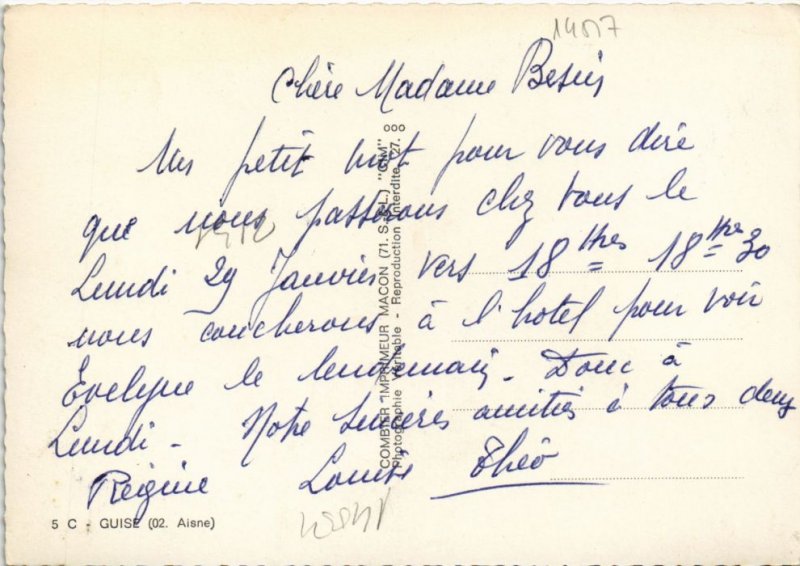 14517
Chère Madame Besins
Un petit mot pour vous dire
que nous passerons chez vous le
Lundi 29 Janvier vers 18 hres 18 hres 30
nous coucherons à l'hotel pour voir
Evelyne le lendemain. Donc à
Lundi - Notre sincères amitiés à tous deux
Régine Louise Théo
5 C - GUISE (02. Aisne)
COMBIER IMPRIMEUR MACON (71. S.-&-L.) "CIM"
Photographie Véritable - Reproduction Interdite 127.